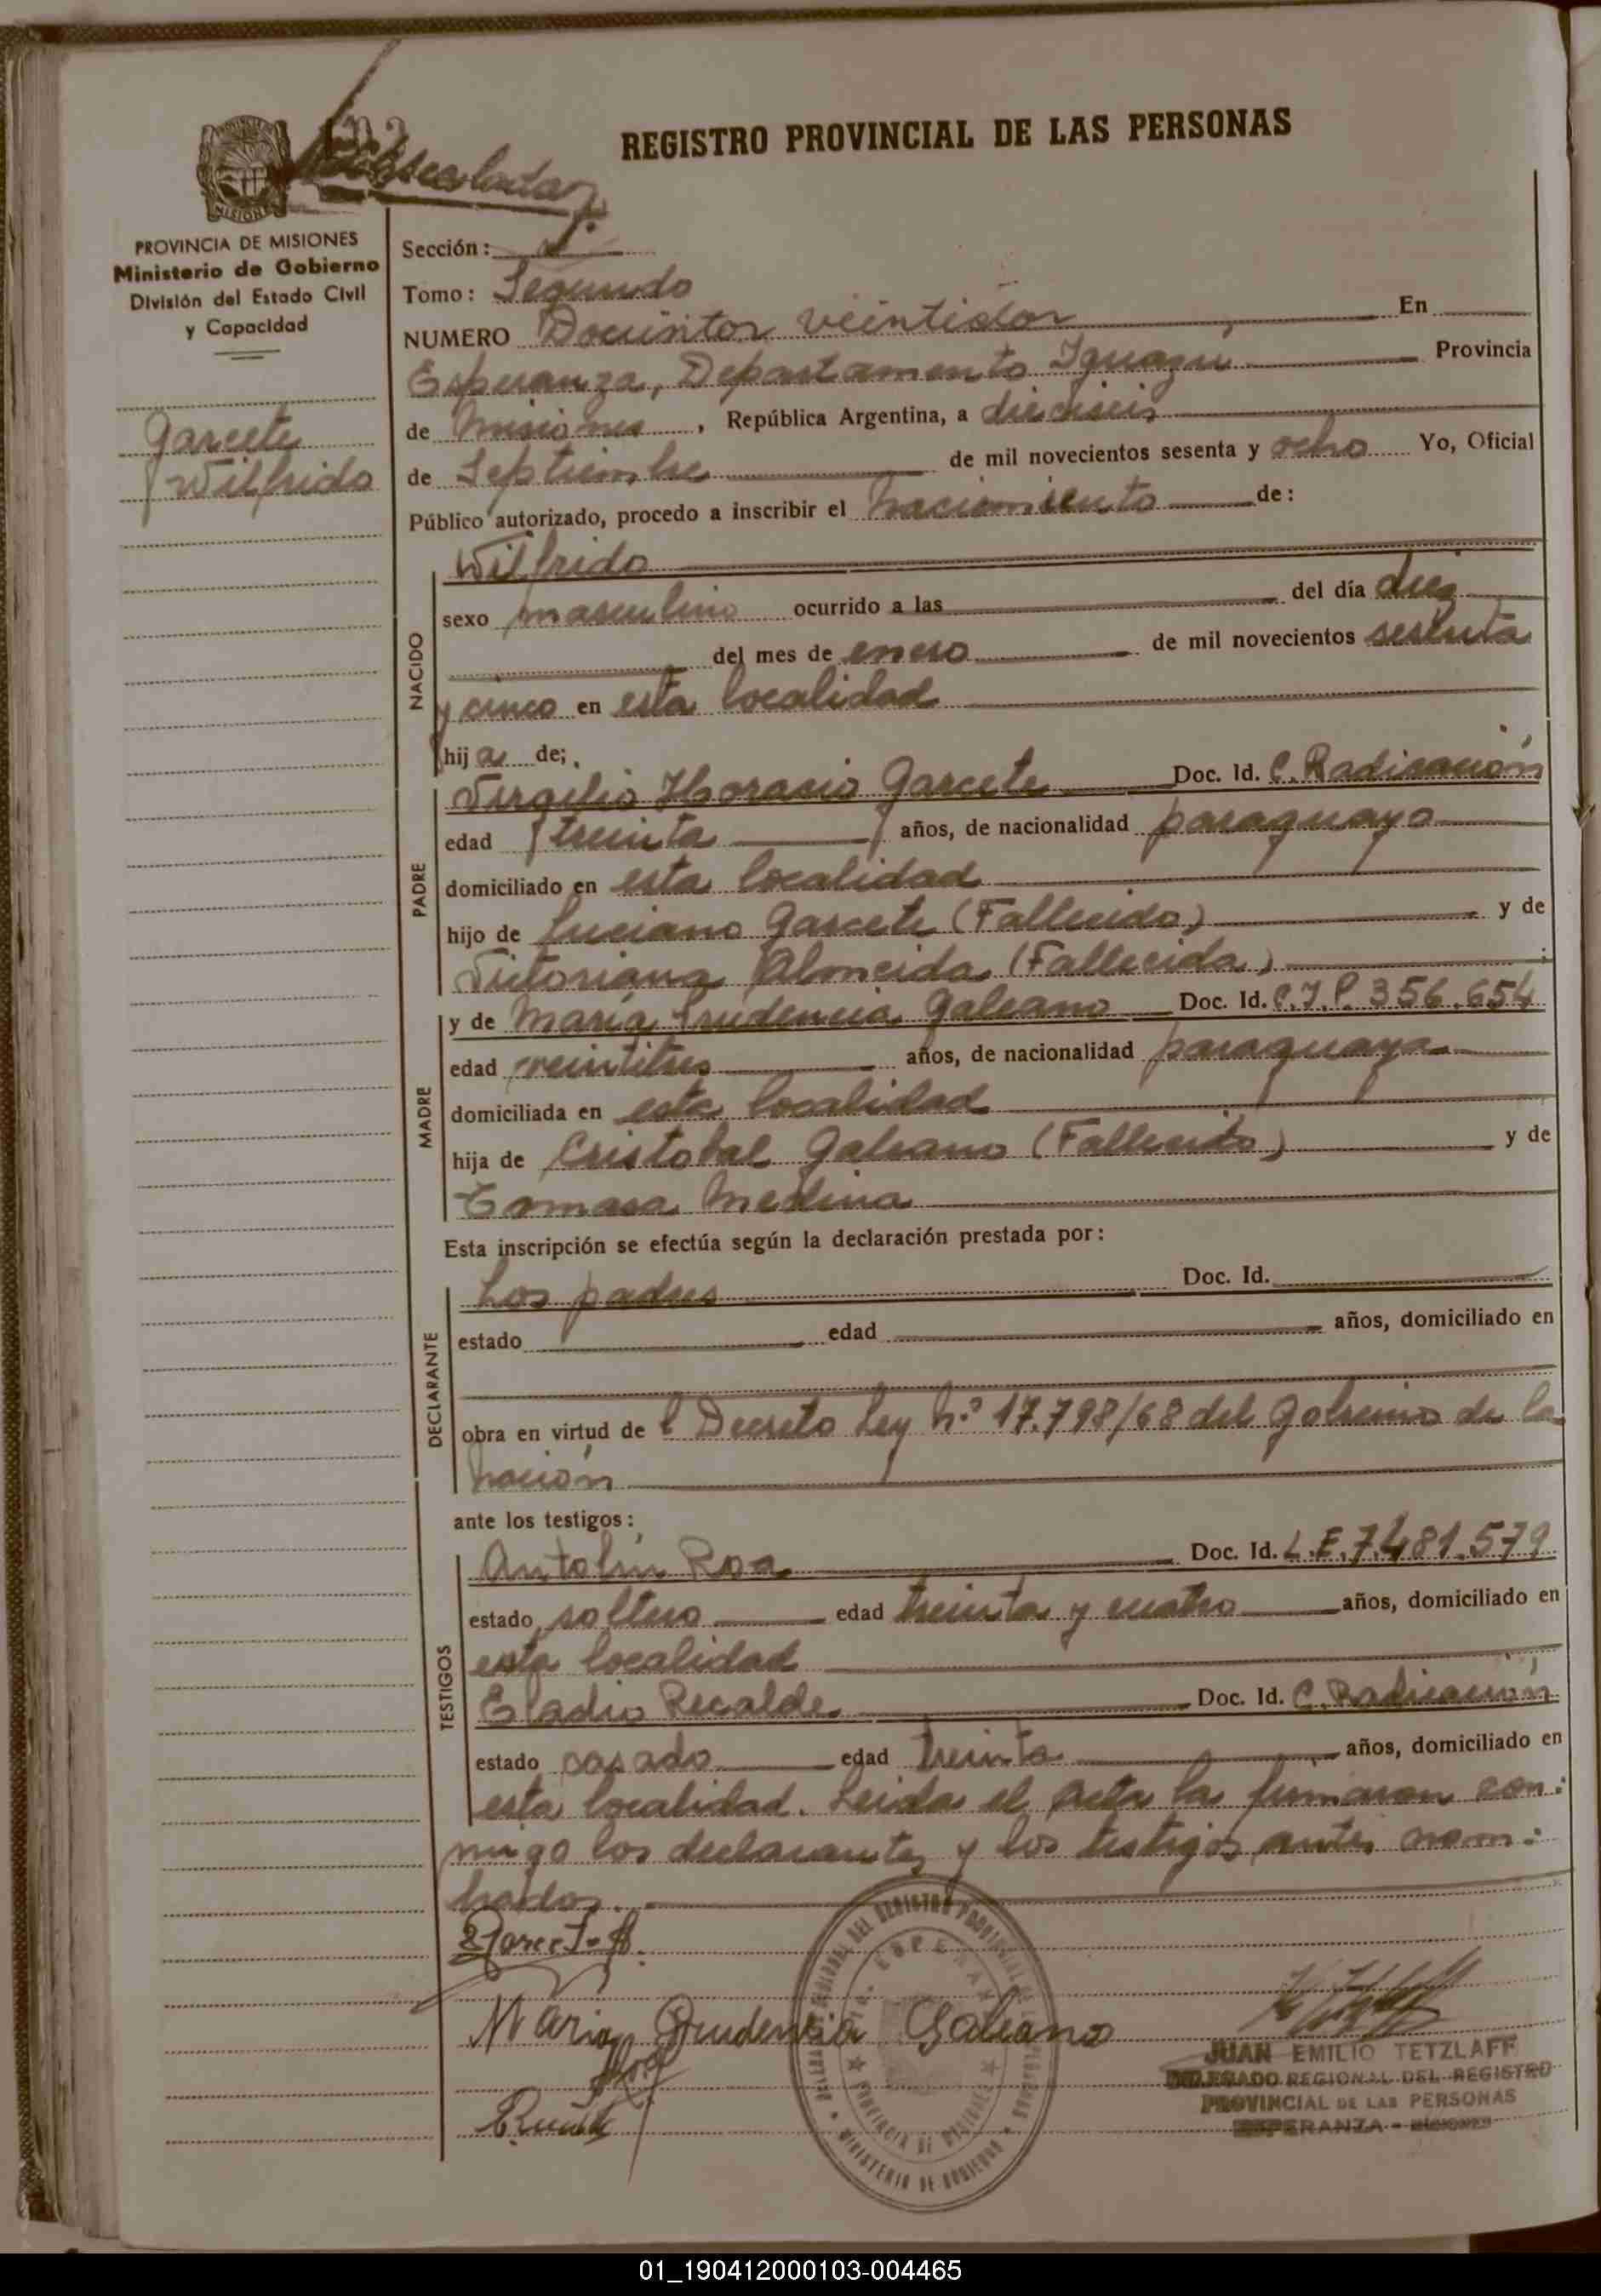 REGISTRO PROVINCIAL DE LAS PERSONAS
222
MISIONES
PROVINCIA DE MISIONES
Ministerio de Gobierno
División del Estado Civil
y Capacidad
Garcete
Wilfrido
Sección: 1ª
Tomo: Segundo
NUMERO Docientos veintidos En
Esperanza, Departamento Iguazú Provincia
de Misiones, República Argentina, a dieciseis
de Septiembre de mil novecientos sesenta y ocho Yo, Oficial
Público autorizado, procedo a inscribir el nacimiento de:
NACIDO
Wilfrido
sexo masculino ocurrido a las del día diez
del mes de enero de mil novecientos sesenta
y cinco en esta localidad
hij a de;
PADRE
Virgilio Horacio Garcete Doc. Id. C. Radicación
edad treinta años, de nacionalidad paraguaya
domiciliado en esta localidad
hijo de Luciano Garcete (Fallecido) y de
Victoriana Almeida (Fallecida);
MADRE
y de María Prudencia Galeano Doc. Id. C.I.P. 356.654
edad veintitres años, de nacionalidad paraguaya
domiciliada en esta localidad
hija de Cristobal Galeano (Fallecido) y de
Tomasa Medina
Esta inscripción se efectúa según la declaración prestada por:
DECLARANTE
Los padres Doc. Id.
estado edad años, domiciliado en
obra en virtud de l Decreto Ley N.º 17.798/68 del Gobierno de la
Nación
ante los testigos:
TESTIGOS
Antolín Roa Doc. Id. L.E. 7.481.579
estado soltero edad treinta y cuatro años, domiciliado en
esta localidad
Eladio Recalde Doc. Id. C. Radicación
estado casado edad treinta años, domiciliado en
esta localidad. Leida el acta la firmaron con-
migo los declarantes y los testigos antes nom-
brados.
Maria Prudencia Galeano
MINISTERIO DE GOBIERNO
PROVINCIA DE MISIONES
JUAN EMILIO TETZLAFF
DELEGADO REGIONAL DEL REGISTRO
PROVINCIAL DE LAS PERSONAS
ESPERANZA - MISIONES
01_190412000103-004465